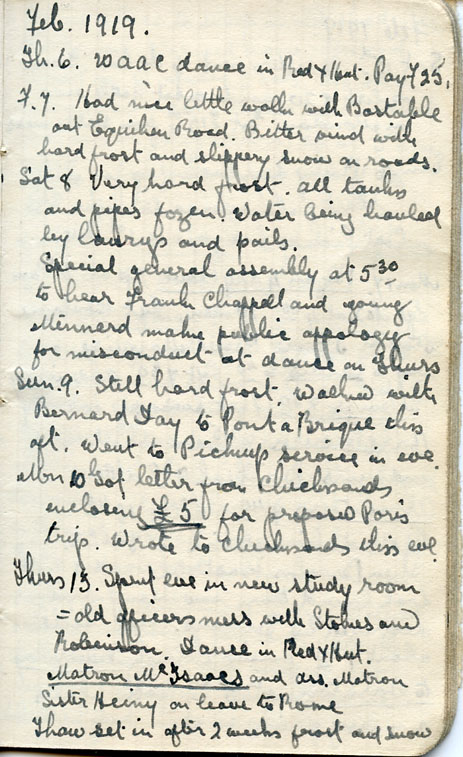 Feb. 1919.
Th. 6. WAAC dance in Red X Hut. Pay F 25.
F. 7. Had nice little walk with Bastable
out Equihen Road. Bitter wind with
hard frost and slippery snow on roads.
Sat 8 Very hard frost. all tanks
and pipes fozen. Water being hauled
by lorrys and pails.
Special general assembly at 5 30
to hear Frank Chappell and young
Minnard make public appology
for misconduct at dance on Thurs
Sun. 9. Still hard frost. Walked with
Bernard Day to Pont a Brique this
aft. Went to service in eve.
Mon 10 Got letter from Chicksands
enclosing £5 for proposed Paris
trip. Wrote to Chicksands this eve.
Thurs 13. Spent eve in new study room
= old officers mess with Stokes and
Robinson. Dance in Red X Hut.
Matron McIsaacs and ass. Matron
Sister Heiny on leave to Rome
Thaw set in after 2 weeks frost and snow